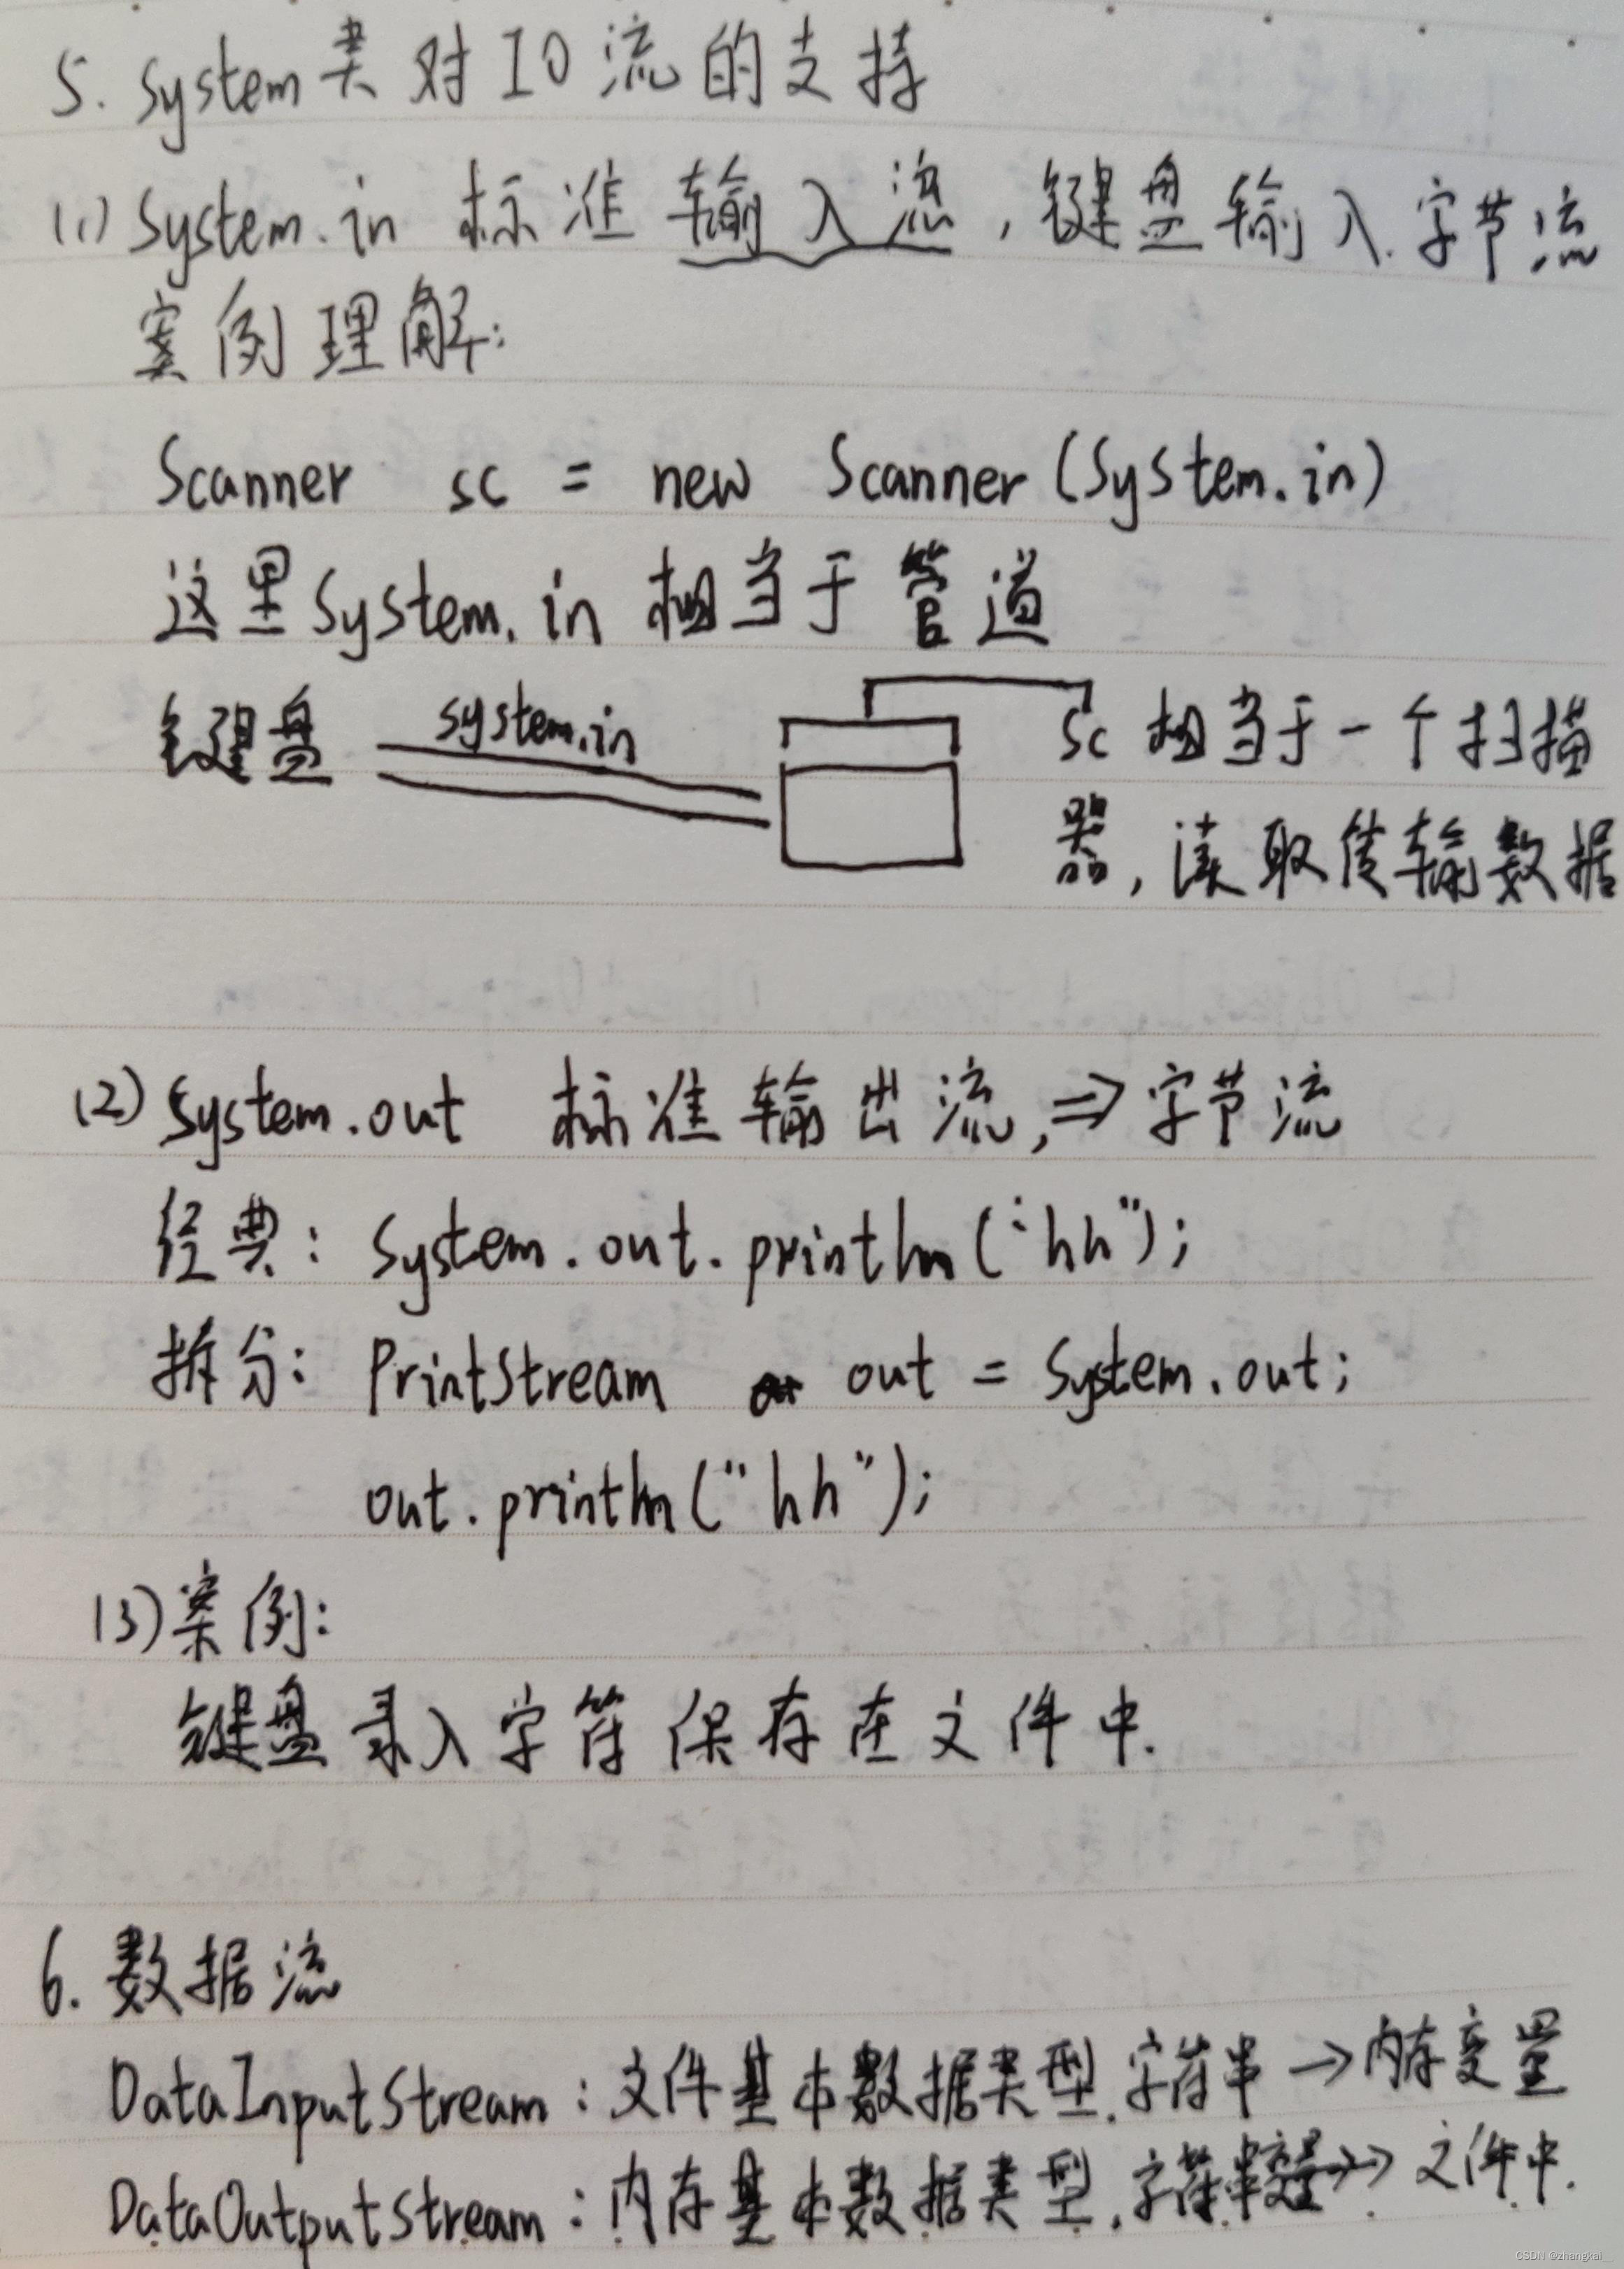 5. System类对IO流的支持
(1) System.in 标准输入流，键盘输入.字节流
案例理解:
Scanner sc = new Scanner(System.in)
这里System.in 相当于管道
键盘 system.in sc 相当于一个扫描
器，读取传输数据
(2) System.out 标准输出流，⇒字节流
经典: System.out.println("hh");
拆分: PrintStream out = System.out;
out.println("hh");
(3) 案例:
键盘录入字符保存在文件中.
6. 数据流
DataInputStream: 文件基本数据类型.字符串→内存变量
DataOutputStream: 内存基本数据类型.字符串变量→文件中.
CSDN @zhangkai__